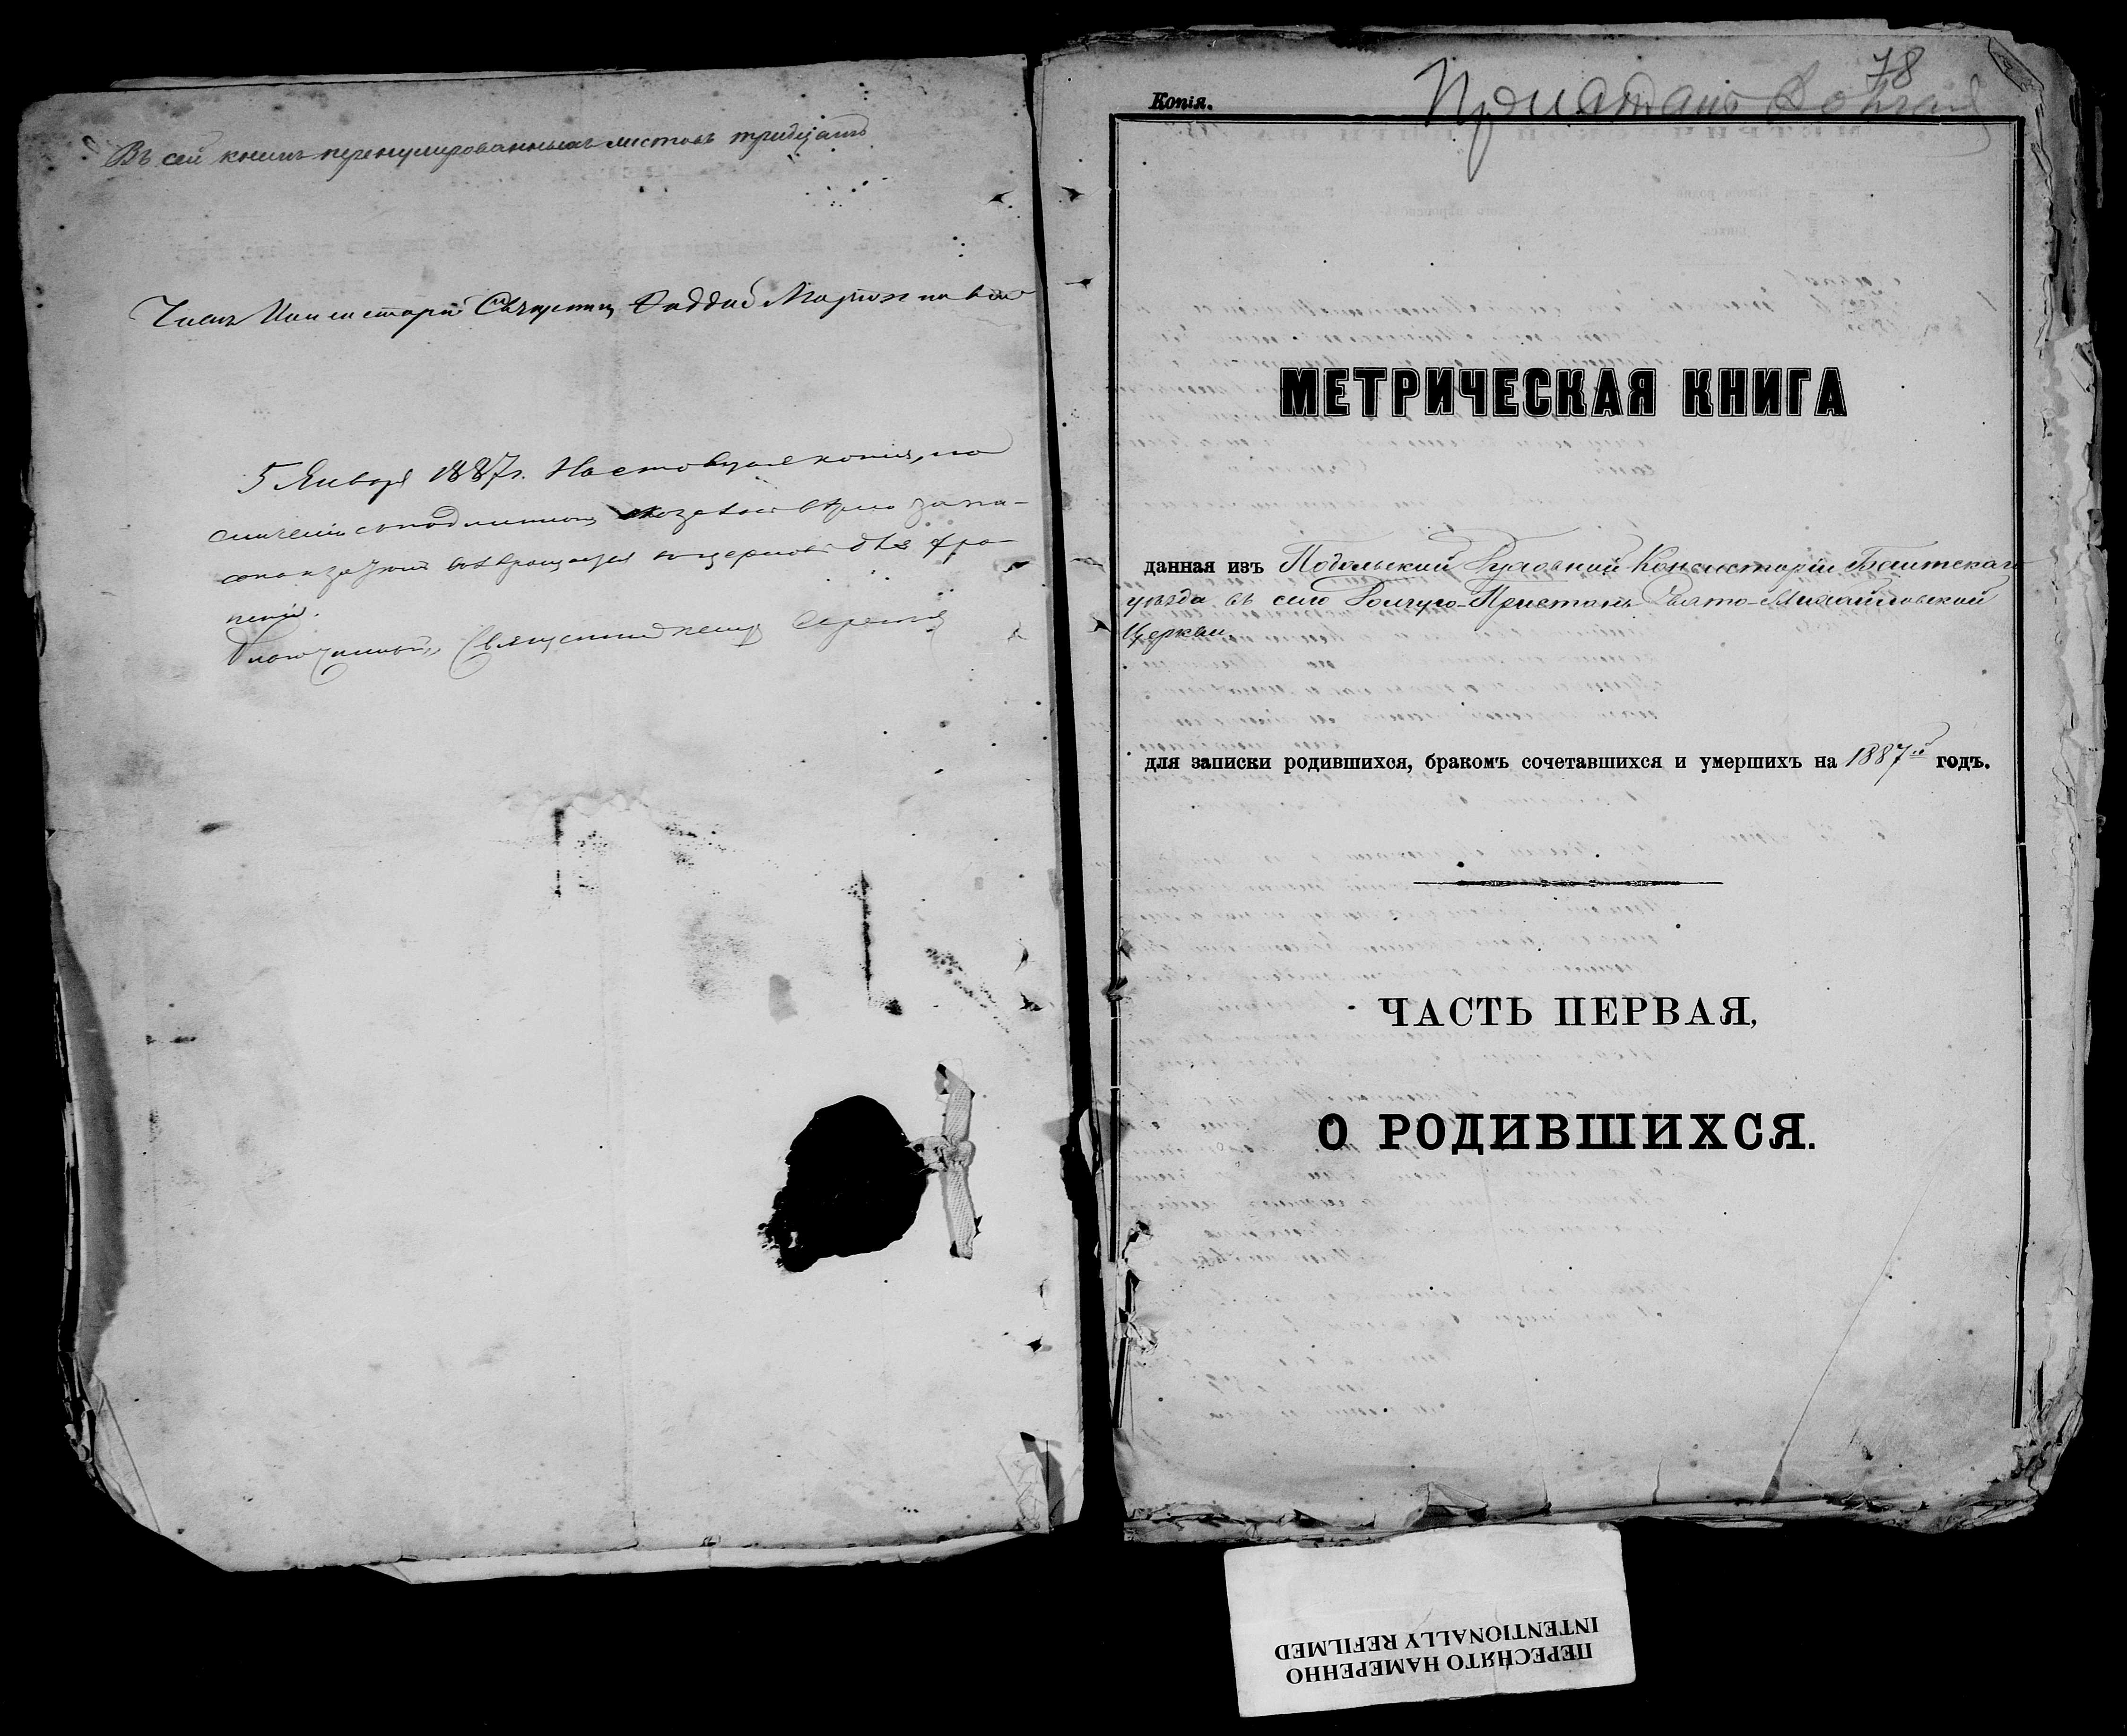 Въ сей книгѣ перенумерованныхъ листовъ тридцать
Членъ Консисторіи Священникъ
5 Января 1887 г. Настоящая копія, по
сличеніи съ подлинною
возвращается
Благочинный, Священникъ
78
Копія.
Пристань Долгая
МЕТРИЧЕСКАЯ КНИГА
данная изъ Подольской Духовной Консисторіи Балтскаго
уѣзда въ село Долгую-Пристань Свято-Михайловской
Церкви.
для записки родившихся, бракомъ сочетавшихся и умершихъ на 1887й годъ.
ЧАСТЬ ПЕРВАЯ,
О РОДИВШИХСЯ.
ПЕРЕСНЯТО НАМЕРЕННО
INTENTIONALLY REFILMED